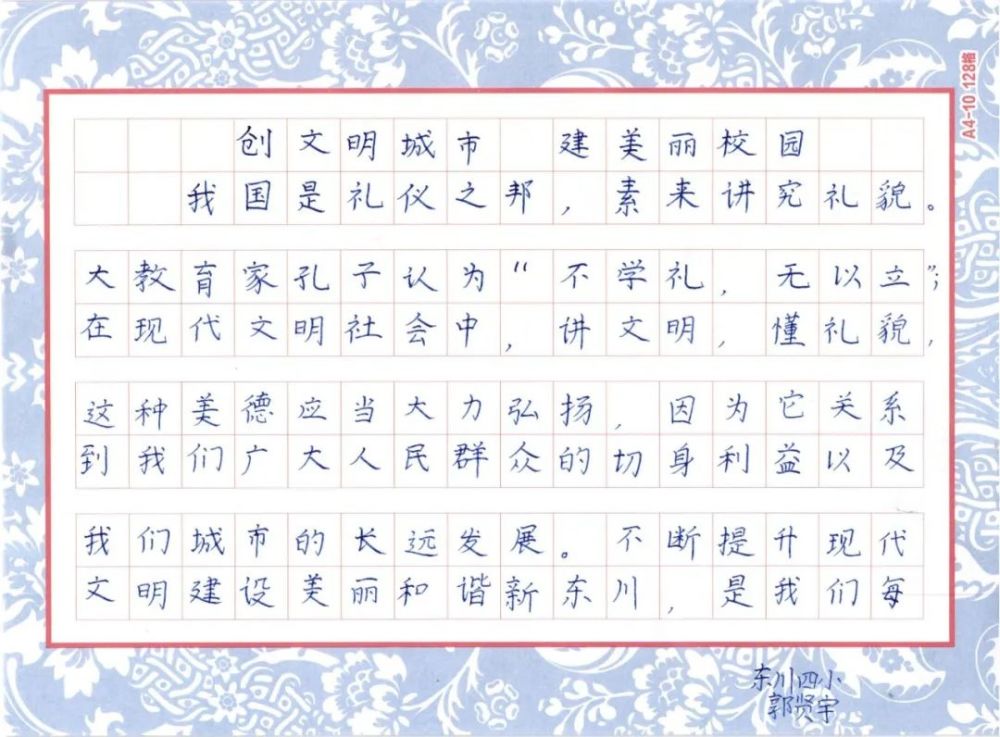 A4-10 128格
创文明城市 建美丽校园
我国是礼仪之邦，素来讲究礼貌。
大教育家孔子认为“不学礼，无以立”；
在现代文明社会中，讲文明，懂礼貌，
这种美德应当大力弘扬，因为它关系
到我们广大人民群众的切身利益以及
我们城市的长远发展。不断提升现代
文明建设美丽和谐新东川，是我们每
东川四小
郭贤宇